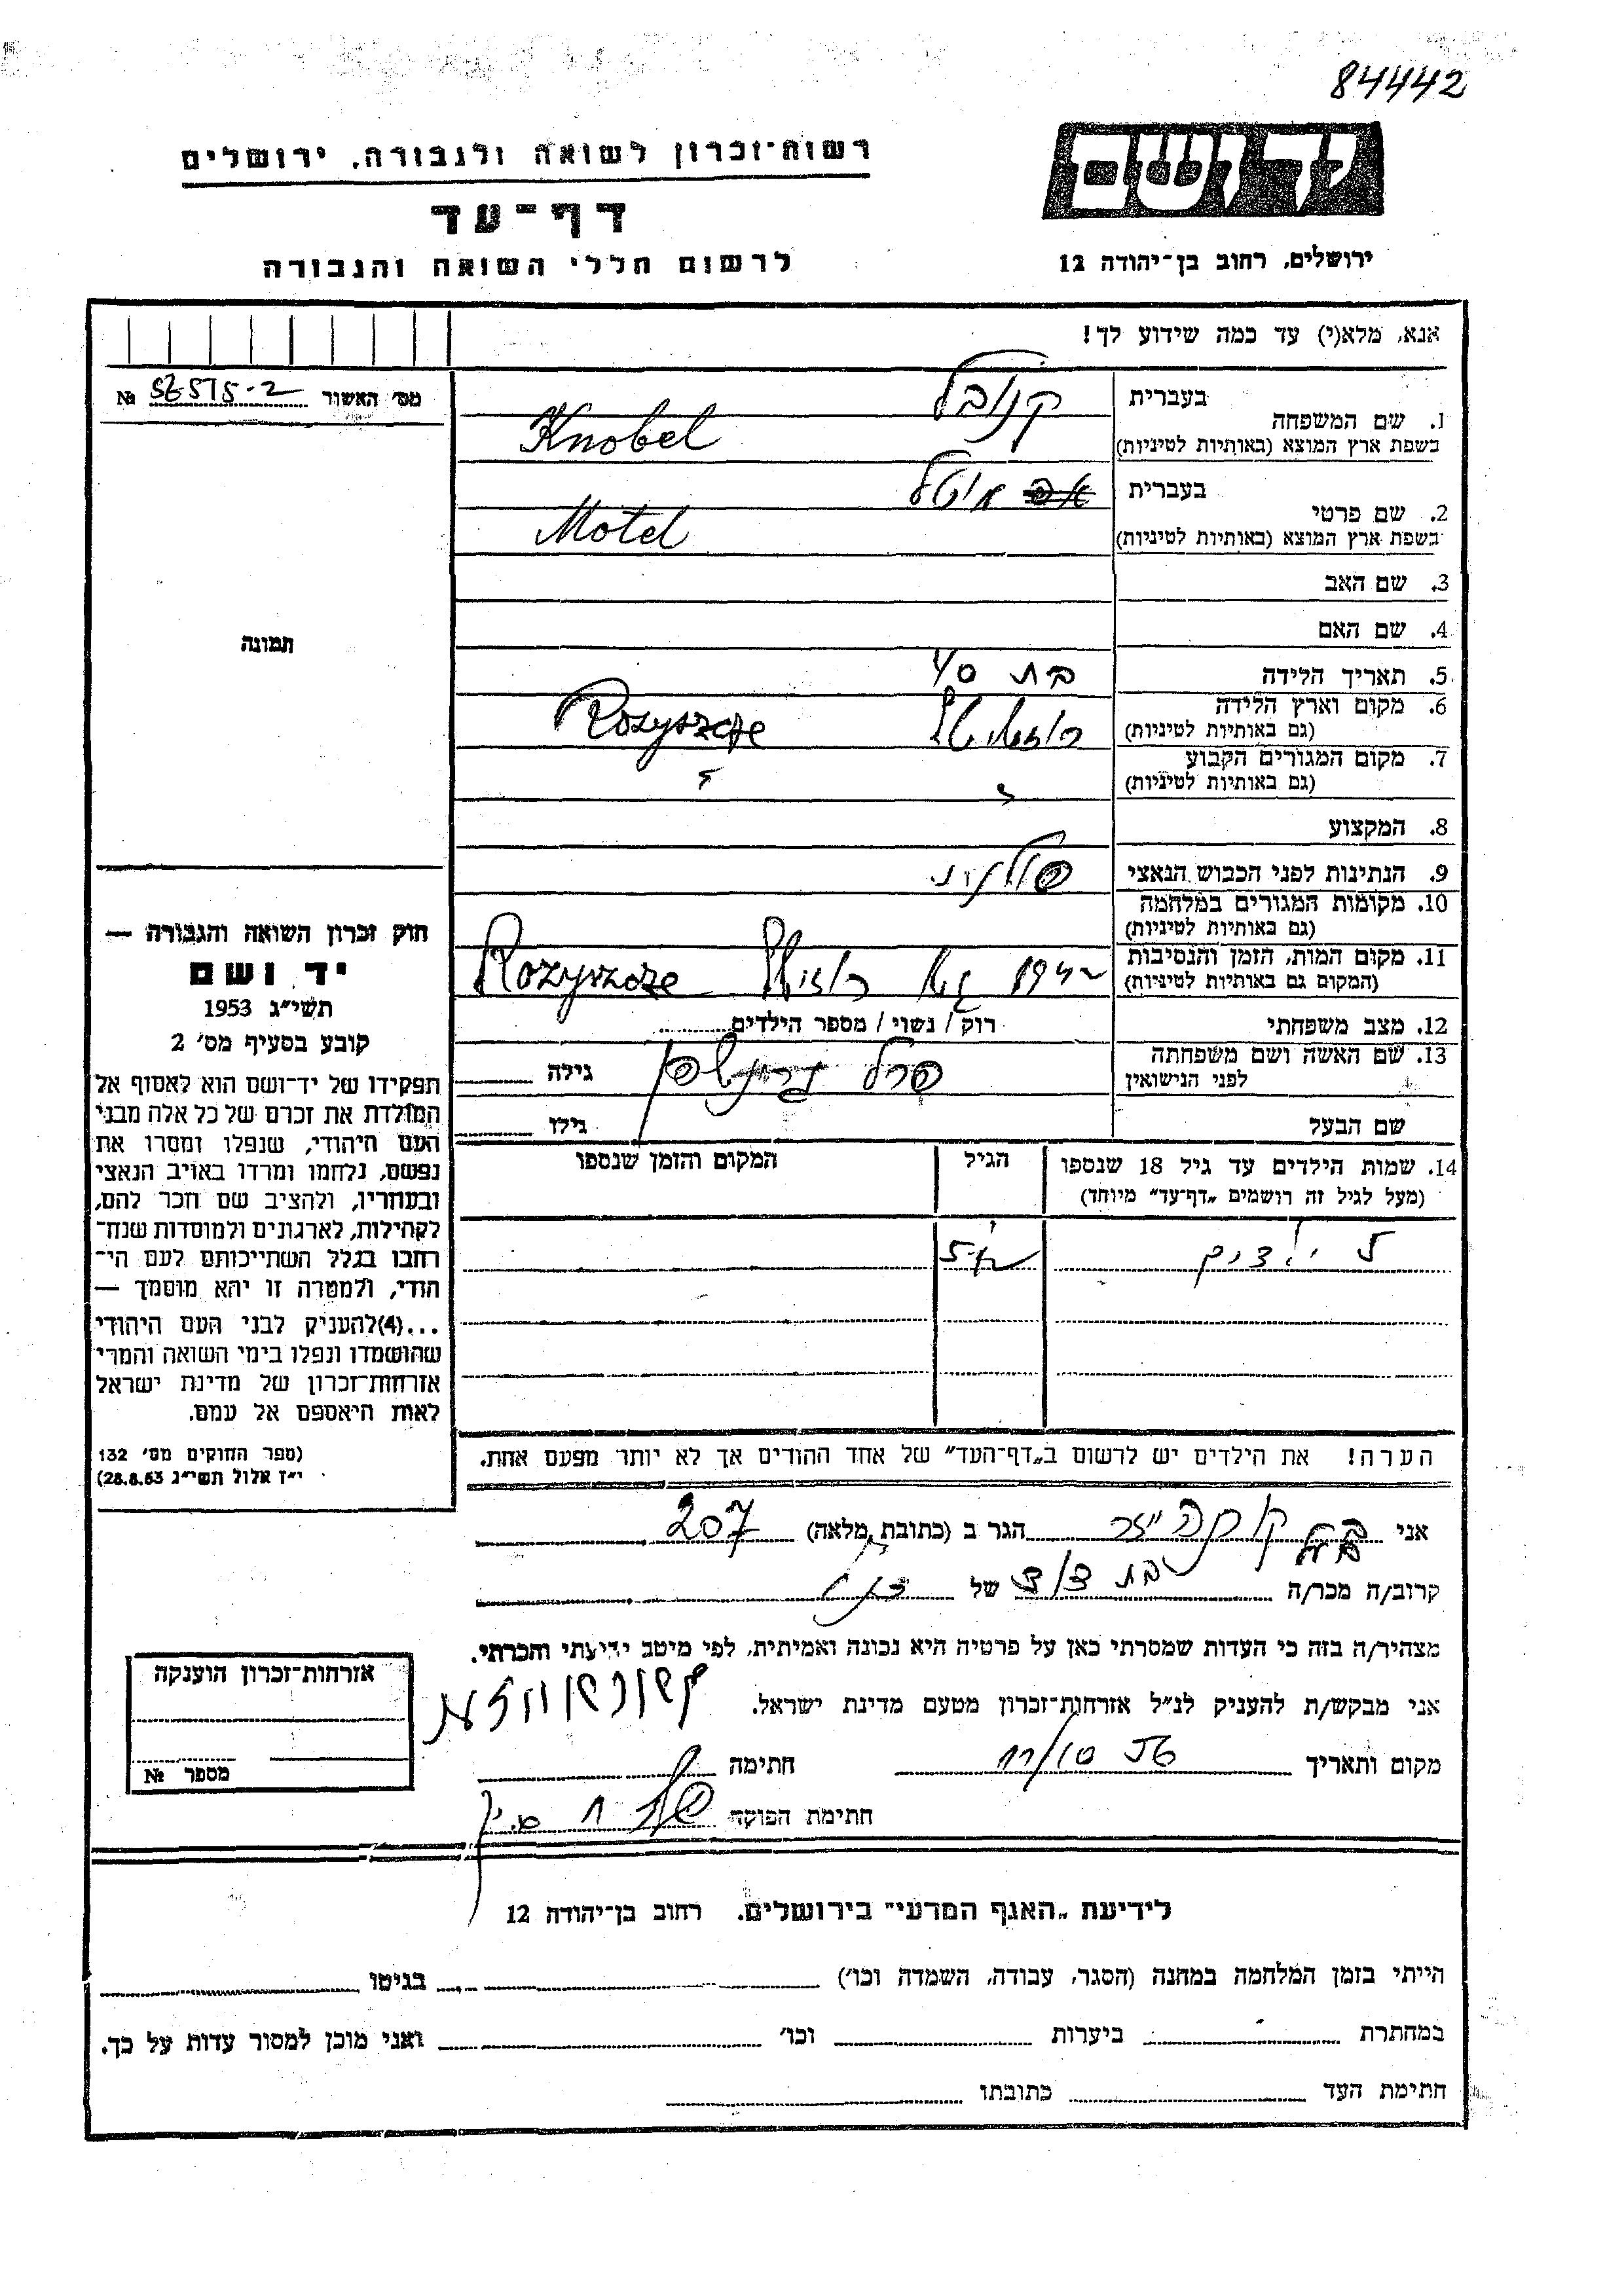 84442
רשות-זכרון לשואה ולגבורה, ירושלים
יד ושם
דף-עד
לרשום חללי השואה והגבורה
ירושלים, רחוב בן-יהודה 12
אנא, מלא(י) עד כמה שידוע לך!
מס׳ האשור № 56515-2
1. שם המשפחה
בעברית קנובל
בשפת ארץ המוצא (באותיות לטיניות) Knobel
2. שם פרטי
בעברית מוטל
בשפת ארץ המוצא (באותיות לטיניות) Motel
3. שם האב
4. שם האם
תמונה
5. תאריך הלידה
6. מקום וארץ הלידה
(גם באותיות לטיניות) Rozyszcze
7. מקום המגורים הקבוע
(גם באותיות לטיניות)
8. המקצוע
9. הנתינות לפני הכבוש הנאצי פולנית
10. מקומות המגורים במלחמה
(גם באותיות לטיניות)
11. מקום המות, הזמן והנסיבות
(המקום גם באותיות לטיניות) Rozyszcze
12. מצב משפחתי רוק / נשוי / מספר הילדים
13. שם האשה ושם משפחתה
לפני הנישואין פרל גילה
שם הבעל גילו
14. שמות הילדים עד גיל 18 שנספו הגיל המקום והזמן שנספו
(מעל לגיל זה רושמים „דף-עד” מיוחד)
ילדים
הערה! את הילדים יש לרשום ב„דף-העד” של אחד ההורים אך לא יותר מפעם אחת.
חוק זכרון השואה והגבורה —
יד ושם
תשי״ג 1953
קובע בסעיף מס׳ 2
תפקידו של יד-ושם הוא לאסוף אל
המולדת את זכרם של כל אלה מבני
העם היהודי, שנפלו ומסרו את
נפשם, נלחמו ומרדו באויב הנאצי
ובעוזריו, ולהציב שם וזכר להם,
לקהילות, לארגונים ולמוסדות שנח-
רבו בגלל השתייכותם לעם הי-
הודי, ולמטרה זו יהא מוסמך —
...(4)להעניק לבני העם היהודי
שהושמדו ונפלו בימי השואה והמרי
אזרחות-זכרון של מדינת ישראל
לאות היאספם אל עמם.
(ספר החוקים מס׳ 132
י״ז אלול תשי״ג 28.8.53)
אני הגר ב (כתובת מלאה) 207
קרוב/ה מכר/ה בת דוד של
מצהיר/ה בזה כי העדות שמסרתי כאן על פרטיה היא נכונה ואמיתית, לפי מיטב ידיעתי והכרתי.
אני מבקש/ת להעניק לנ״ל אזרחות-זכרון מטעם מדינת ישראל.
מקום ותאריך חתימה
חתימת הפוקד
אזרחות-זכרון הוענקה
מספר №
לידיעת „האגף המדעי” בירושלים, רחוב בן-יהודה 12
הייתי בזמן המלחמה במחנה (הסגר, עבודה, השמדה וכו׳) בגיטו
במחתרת ביערות וכו׳ ואני מוכן למסור עדות על כך.
חתימת העד כתובתו